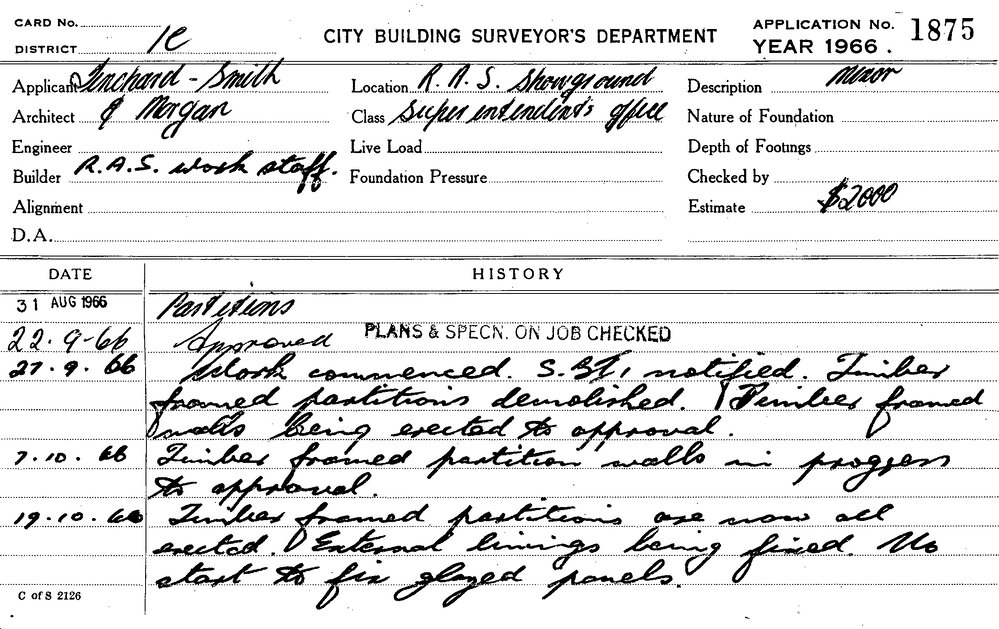 CARD No.
DISTRICT 1C
CITY BUILDING SURVEYOR'S DEPARTMENT
APPLICATION No. 1875
YEAR 1966.
Applicant Pinchard-Smith
Location R.A.S. Showground
Description Minor
Architect & Morgan
Class Superintendent's office
Nature of Foundation
Engineer
Live Load
Depth of Footings
Builder R.A.S. work staff.
Foundation Pressure
Checked by
Alignment
Estimate $2000
D.A.
DATE HISTORY
31 AUG 1966 Partitions
22.9-66 Approved PLANS & SPECN. ON JOB CHECKED
27.9.66 Work commenced. notified. Timber
framed partitions demolished. Timber framed
walls being erected to approval.
7.10.66 Timber framed partition walls in progress
to approval.
19.10.66 Timber framed partitions are now all
erected. External linings being fixed. No
start to fix glazed panels.
C of S 2126